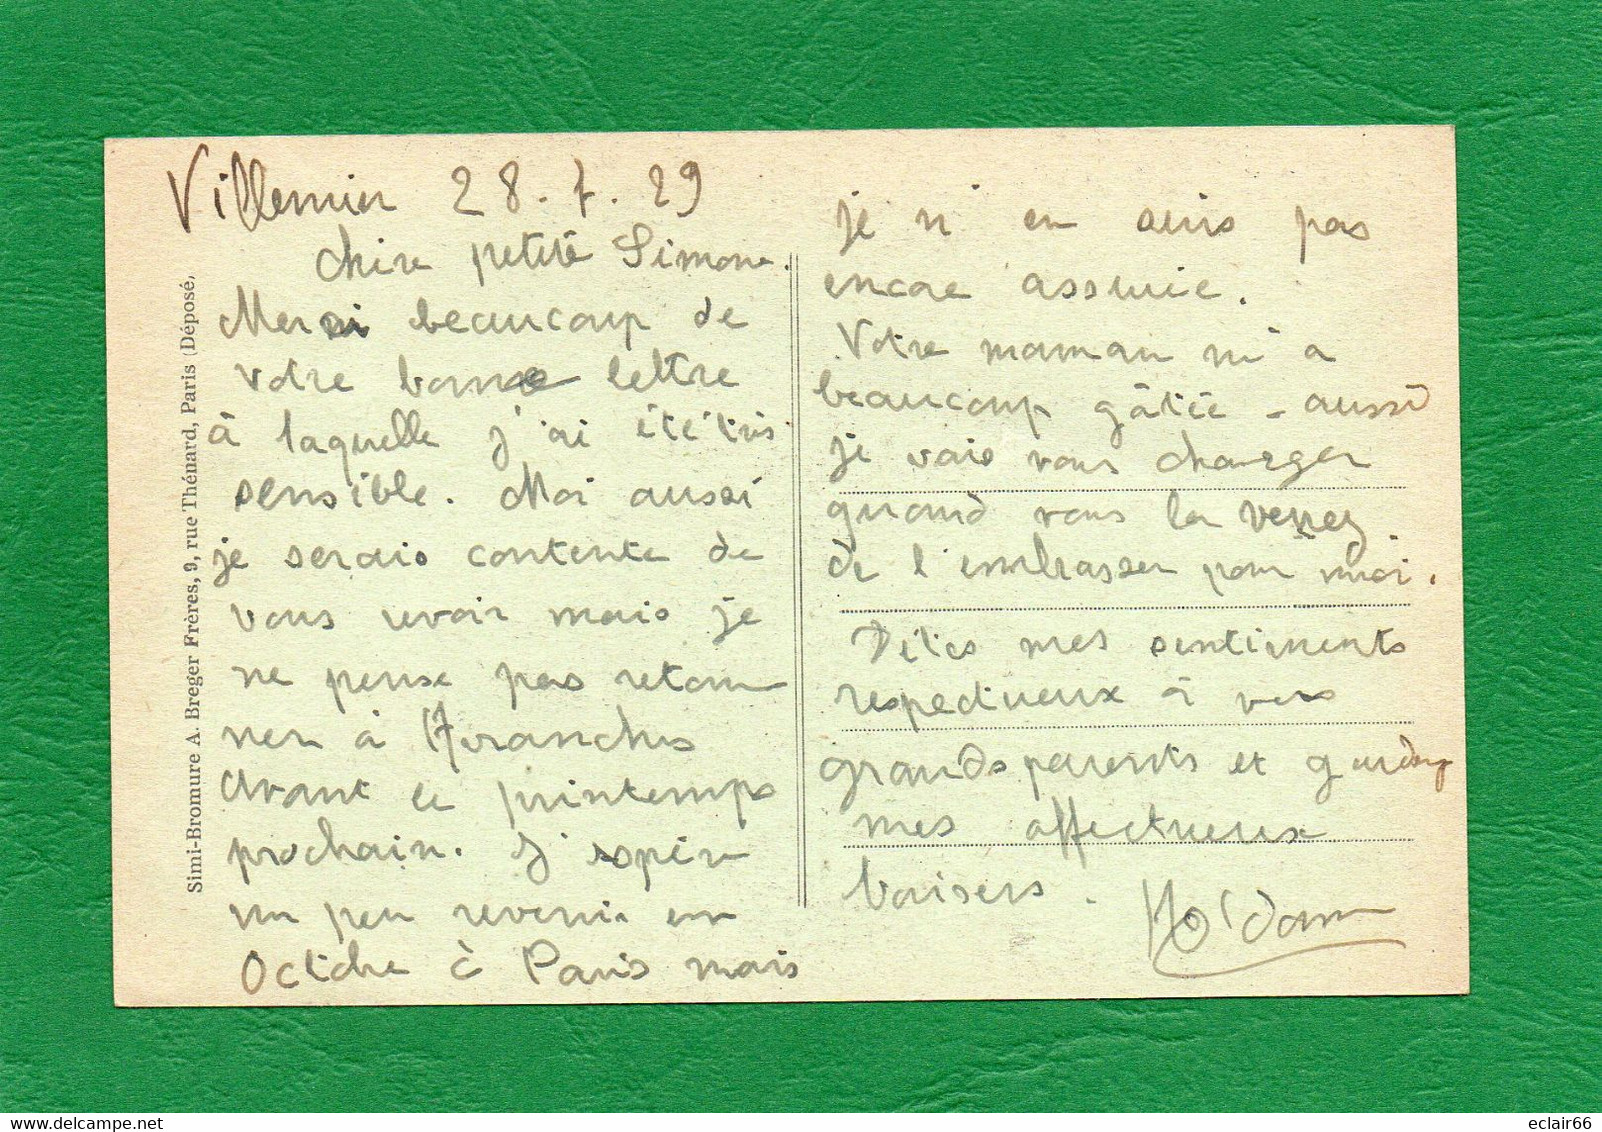 Villemin 28.7.29
Chère petite Simone.
Merci beaucoup de
votre bonne lettre
à laquelle j'ai été très
sensible. Moi aussi
je serais contente de
vous revoir mais je
ne pense pas retour
ner à Avranches
avant le printemps
prochain. J'espère
un peu revenir en
Octobre à Paris mais
je n'en suis pas
encore assurée.
Votre maman m'a
beaucoup gâtée - aussi
je vais vous charger
quand vous la verrez
de l'embrasser pour moi.
Dites mes sentiments
respectueux à vos
grands parents et gardez
mes affectueux
baisers.
Simi-Bromure A. Breger Frères, 9, rue Thénard, Paris (Déposé,
eclair66